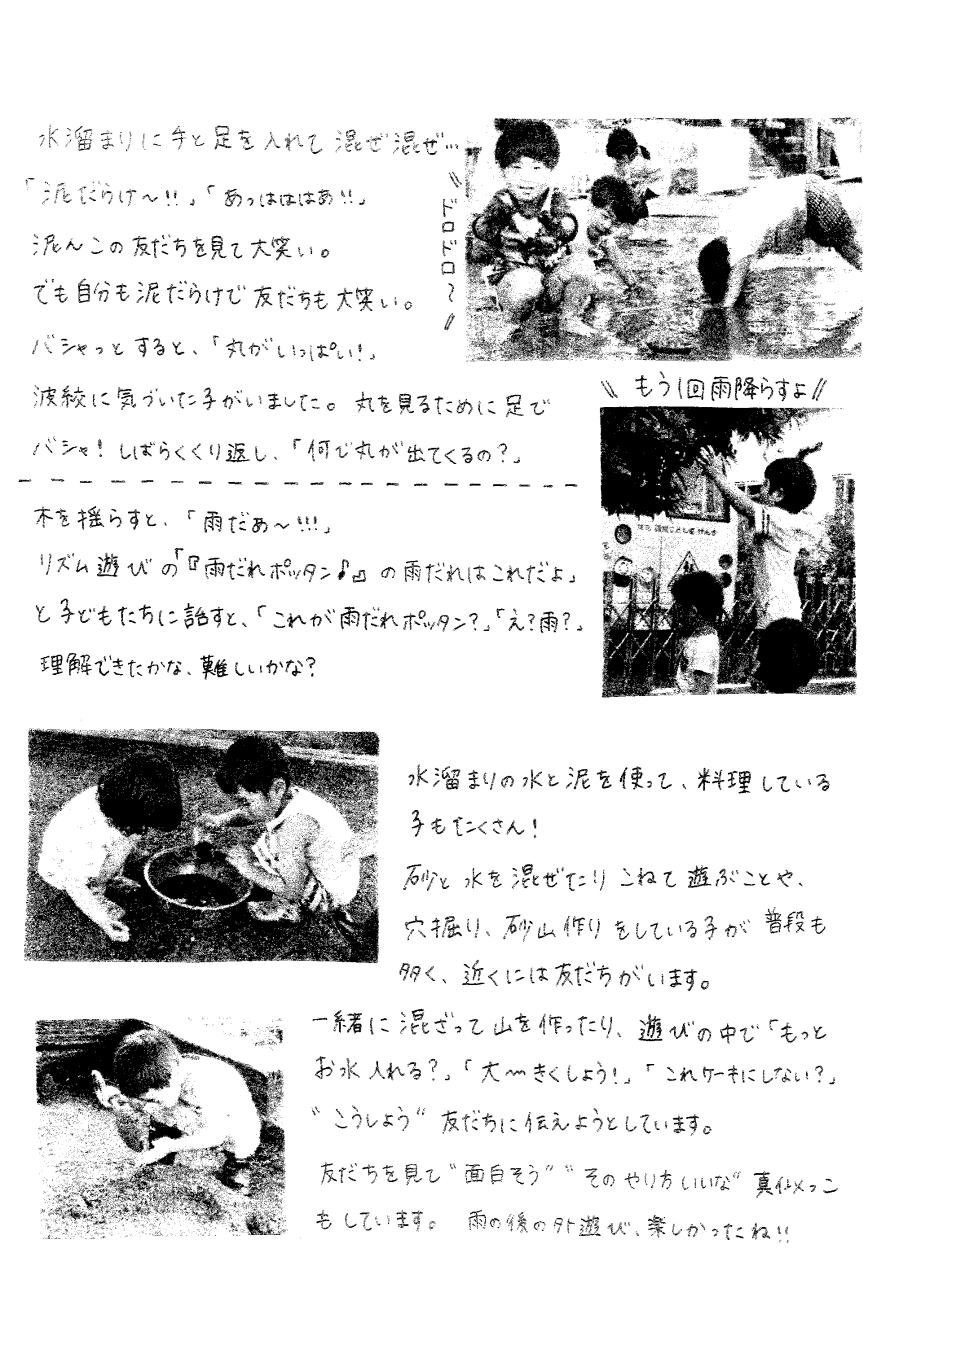 水溜まりに手と足を入れて混ぜ混ぜ…
「泥だらけ〜!!」「あっはははあ!!」
泥んこの友だちを見て大笑い。
でも自分も泥だらけで友だちも大笑い。
バシャっとすると、「丸がいっぱい!」
波紋に気づいた子がいました。丸を見るために足で
バシャ!しばらくくり返し、「何で丸が出てくるの?」
\\ドロドロ〜//
\\もう1回雨降らすよ//
木を揺らすと、「雨だぁ〜!!!」
リズム遊びの「『雨だれポッタン♪』の雨だれはこれだよ」
と子どもたちに話すと、「これが雨だれポッタン?」「え?雨?」
理解できたかな、難しいかな?
水溜まりの水と泥を使って、料理している
子もたくさん!
砂と水を混ぜたりこねて遊ぶことや、
穴掘り、砂山作りをしている子が普段も
多く、近くには友だちがいます。
一緒に混ざって山を作ったり、遊びの中で「もっと
お水入れる?」「大〜きくしよう!」「これケーキにしない?」
"こうしよう"友だちに伝えようとしています。
友だちを見て"面白そう""そのやり方いいな"真似っこ
もしています。雨の後の外遊び、楽しかったね!!